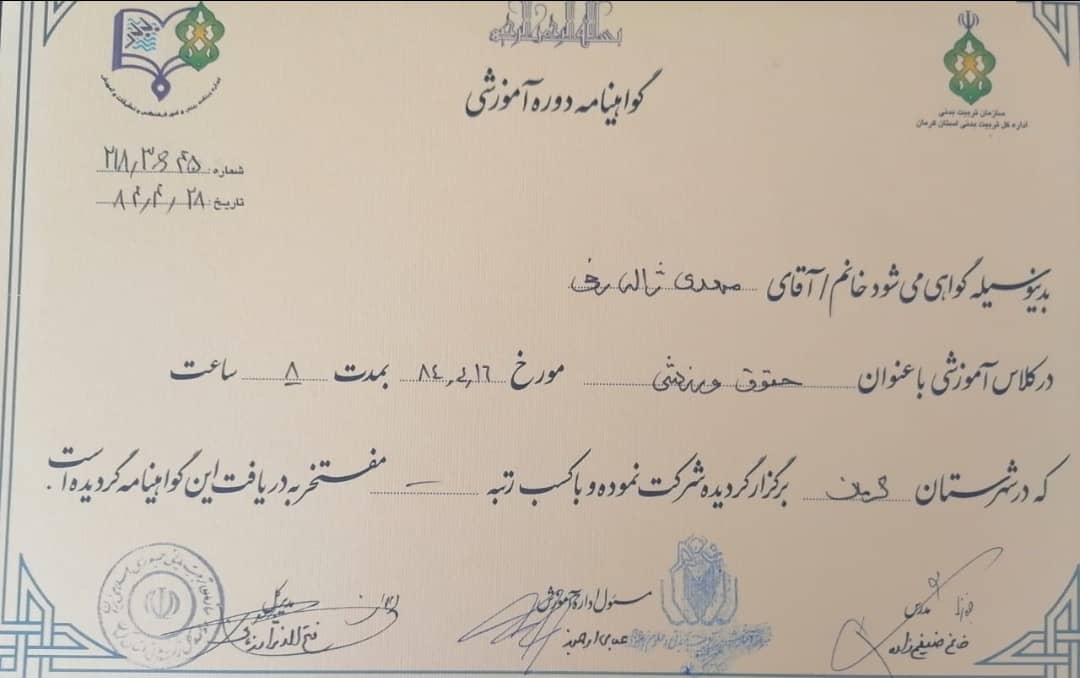 بسم الله الرحمن الرحیم
گواهینامه دوره آموزشی
سازمان تربیت بدنی
اداره کل تربیت بدنی استان کرمان
شماره:
تاریخ: ۸۴/۴/۲۸
بدینوسیله گواهی می شود خانم / آقای مهدی ژاله رفی
در کلاس آموزشی با عنوان حقوق ورزشی مورخ بمدت ۸ ساعت
که در شهرستان کرمان برگزار گردیده شرکت نموده و با کسب رتبه — مفتخر به دریافت این گواهینامه گردیده است.
مدرس
خانم ضیغمی زاده
مسئول اداره آموزش
مدیر کل